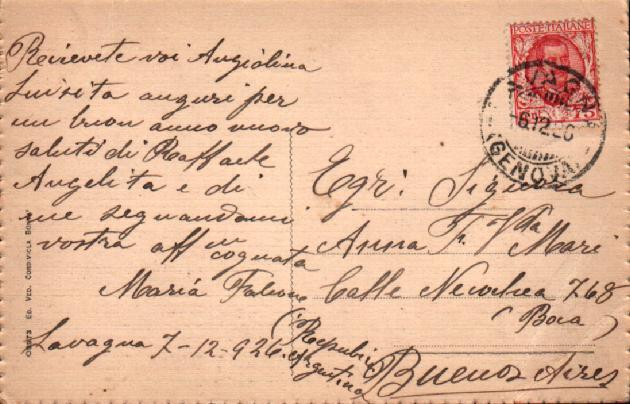 Recevete voi Angiolina
Luisita auguri per
un buon anno nuovo
saluti di Raffaele
Angelita e di
me segnandomi
vostra aff.ma
cognata
Maria
Lavagna 7-12-926
Egr: Signora
Anna F. Vda Mari
Calle Necochea 768
(Boca)
Buenos Aires
(Republica
Argentina)
POSTE ITALIANE
6.12.26
(GENOVA)
ED. VED.